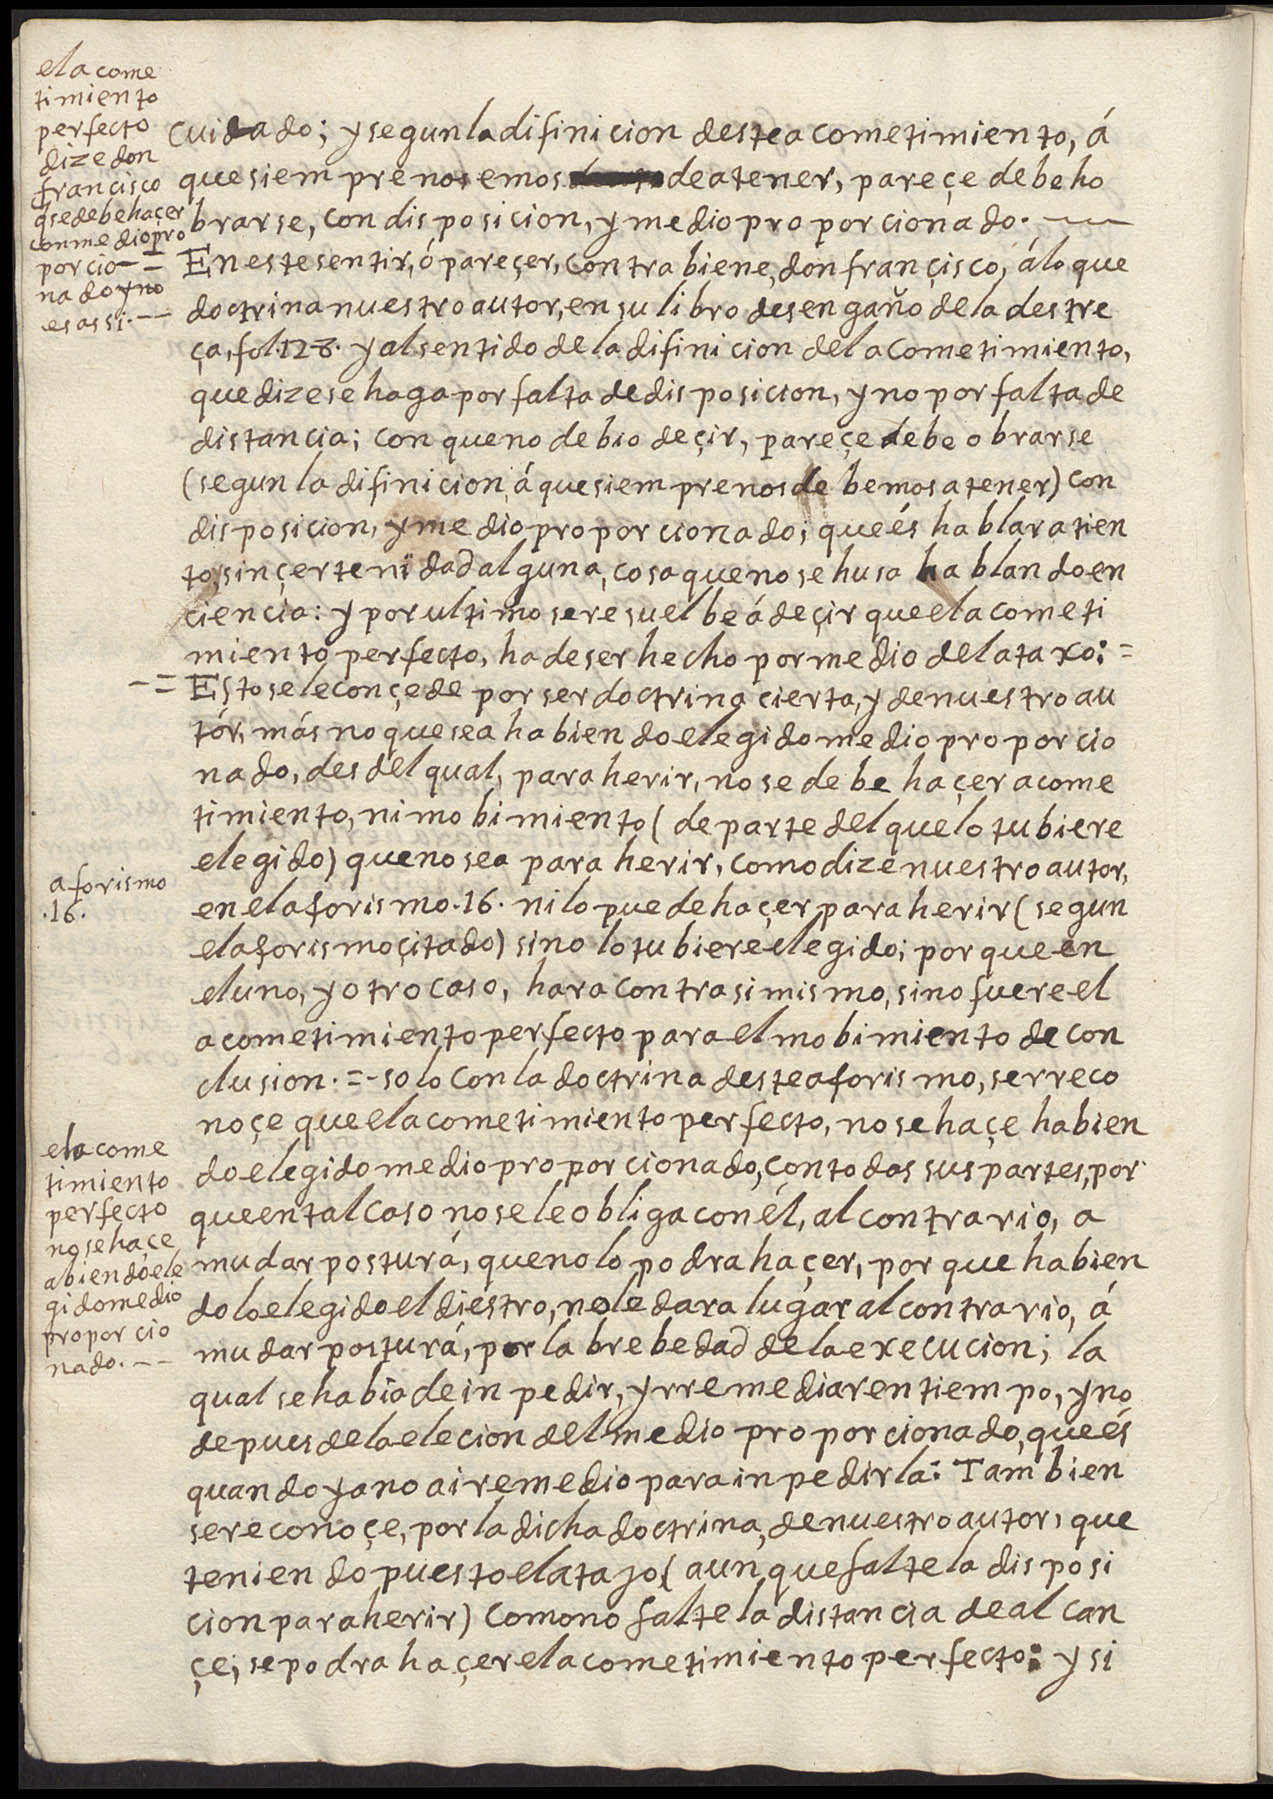 el acome
timiento
perfecto
dize don
francisco
q se debe haçer
con medio pro
porcio - =
nado y no
es assi. —
cuidado; y segun la difinicion deste acometimiento, á
que siempre nos emos de atener, pareçe debe ho
brarse, con disposicion, y medio proporcionado. —
En este sentir, ó pareçer, contrabiene, don françisco, á lo que
doctrina nuestro autor, en su libro desengaño de la destre
ça, fol. 128. y al sentido de la difinicion del acometimiento,
que dize se haga por falta de disposicion, y no por falta de
distancia; con que no debio deçir, pareçe debe obrarse
(segun la difinicion, á que siempre nos debemos atener) con
disposicion, y medio proporcionado; que és hablar a tien
to, sin çertenidad alguna, cosa que no se husa hablando en
ciencia: y por ultimo se resuelbe á deçir que el acometi
miento perfecto, ha de ser hecho por medio del ataxo: =
- = Esto se le conçede por ser doctrina cierta, y de nuestro au
tór, más no que sea habiendo elegido medio proporcio
nado, desdel qual, para herir, no se debe haçer acome
timiento, ni mobimiento (de parte del que lo tubiere
elegido) que no sea para herir, como dize nuestro autor,
aforismo
.16.
en el aforismo .16. ni lo puede haçer para herir (segun
el aforismo çitado) sino lo tubiere elegido; por que en
el uno, y otro caso, hara contra si mismo, sino fuere el
acometimiento perfecto para el mobimiento de con
clusion. =- solo con la doctrina deste aforismo, se rreco
noçe que el acometimiento perfecto, no se haçe habien
el acome
timiento
perfecto
no se haçe
abiendo ele
gido medio
proporcio
nado. — —
do elegido medio proporcionado, con todas sus partes, por
que en tal caso no se le obliga con él, al contrario, a
mudar posturá, que no lo podra haçer, por que habien
dolo elegido el diestro, no le dara lugar al contrario, á
mudar posturá, por la brebedad de la execucion; la
qual se habia de inpedir, y rremediar en tiempo, y no
depues de la elecion del medio proporcionado, que és
quando ya no ai remedio para inpedirla: Tambien
se reconoçe, por la dicha doctrina, de nuestro autor, que
teniendo puesto el atajo (aunque falte la disposi
cion para herir) como no falte la distancia de alcan
çe; se podra haçer el acometimiento perfecto: y si